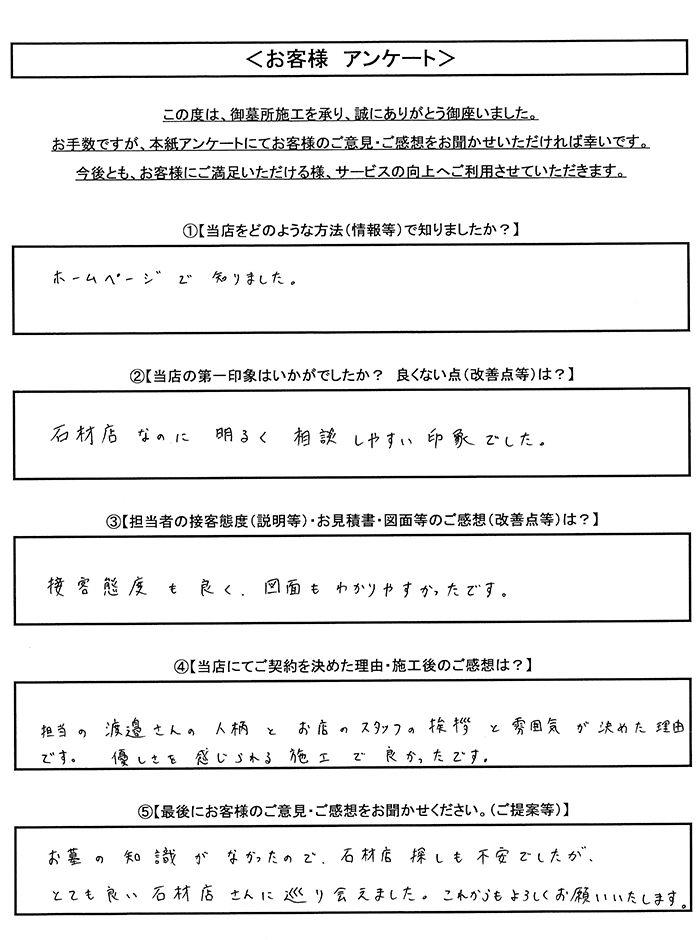 ＜お客様　アンケート＞
この度は、御墓所施工を承り、誠にありがとう御座いました。
お手数ですが、本紙アンケートにてお客様のご意見・ご感想をお聞かせいただければ幸いです。
今後とも、お客様にご満足いただける様、サービスの向上へご利用させていただきます。
①【当店をどのような方法（情報等）で知りましたか？】
ホームページで知りました。
②【当店の第一印象はいかがでしたか？　良くない点（改善点等）は？】
石材店なのに明るく相談しやすい印象でした。
③【担当者の接客態度（説明等）・お見積書・図面等のご感想（改善点等）は？】
接客態度も良く、図面もわかりやすかったです。
④【当店にてご契約を決めた理由・施工後のご感想は？】
担当の渡邉さんの人柄とお店のスタッフの挨拶と雰囲気が決めた理由
です。優しさを感じられる施工で良かったです。
⑤【最後にお客様のご意見・ご感想をお聞かせください。（ご提案等）】
お墓の知識がなかったので、石材店探しも不安でしたが、
とても良い石材店さんに巡り会えました。これからもよろしくお願いいたします。